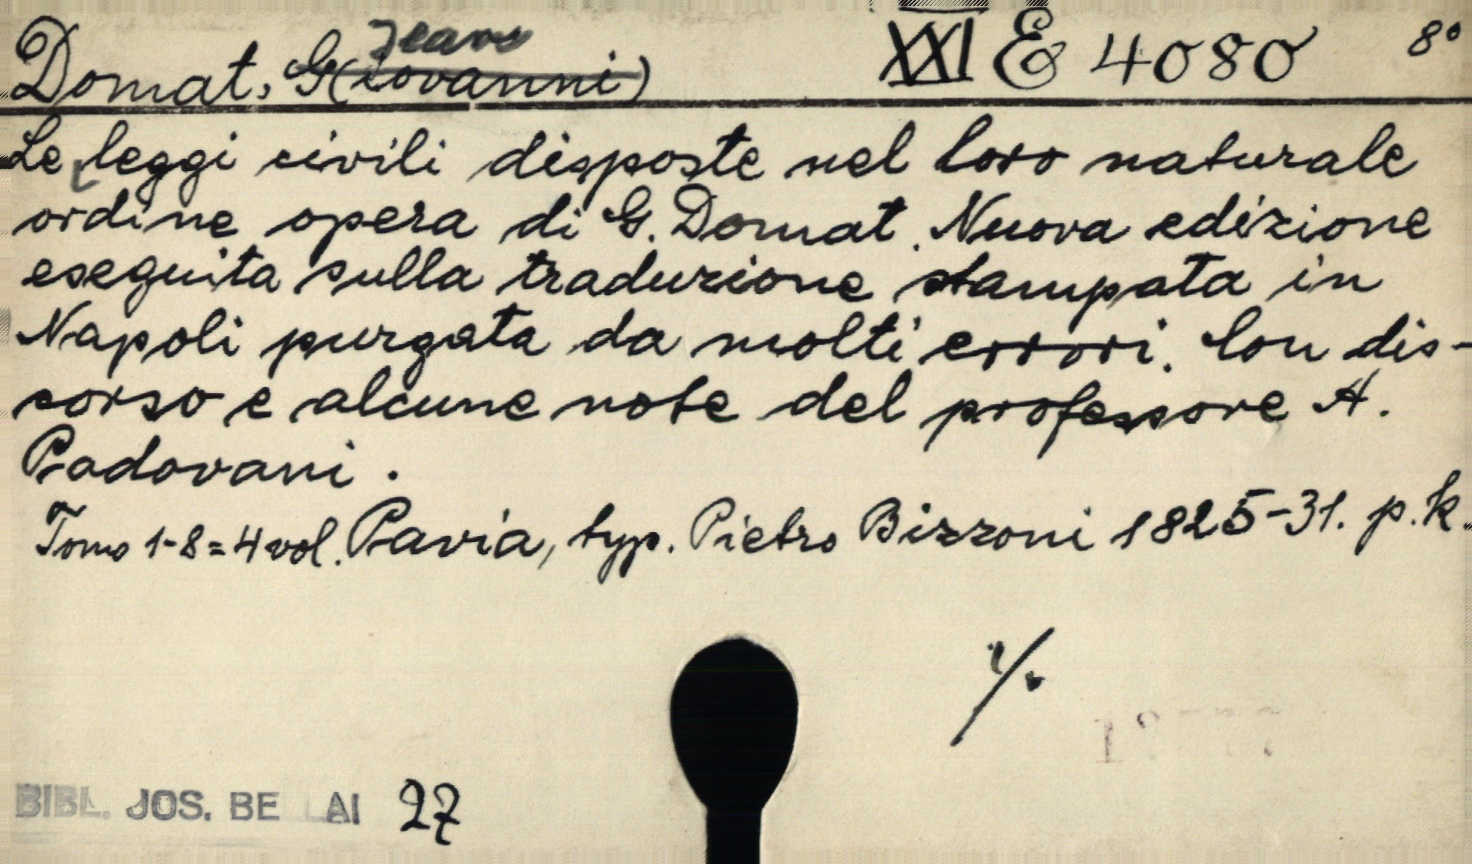 Jean
Domat, G(iovanni) XXI E 4080 8°
Le leggi civili disposte nel loro naturale
ordine opera di G. Domat. Nuova edizione
eseguita sulla traduzione stampata in
Napoli purgata da molti errori. Con dis-
corso e alcune note del professore A.
Padovani.
Tomo 1-8=4 vol. Pavia, typ. Pietro Bizzoni 1825-31. p.k.
BIBL. JOS. BE LAI 27